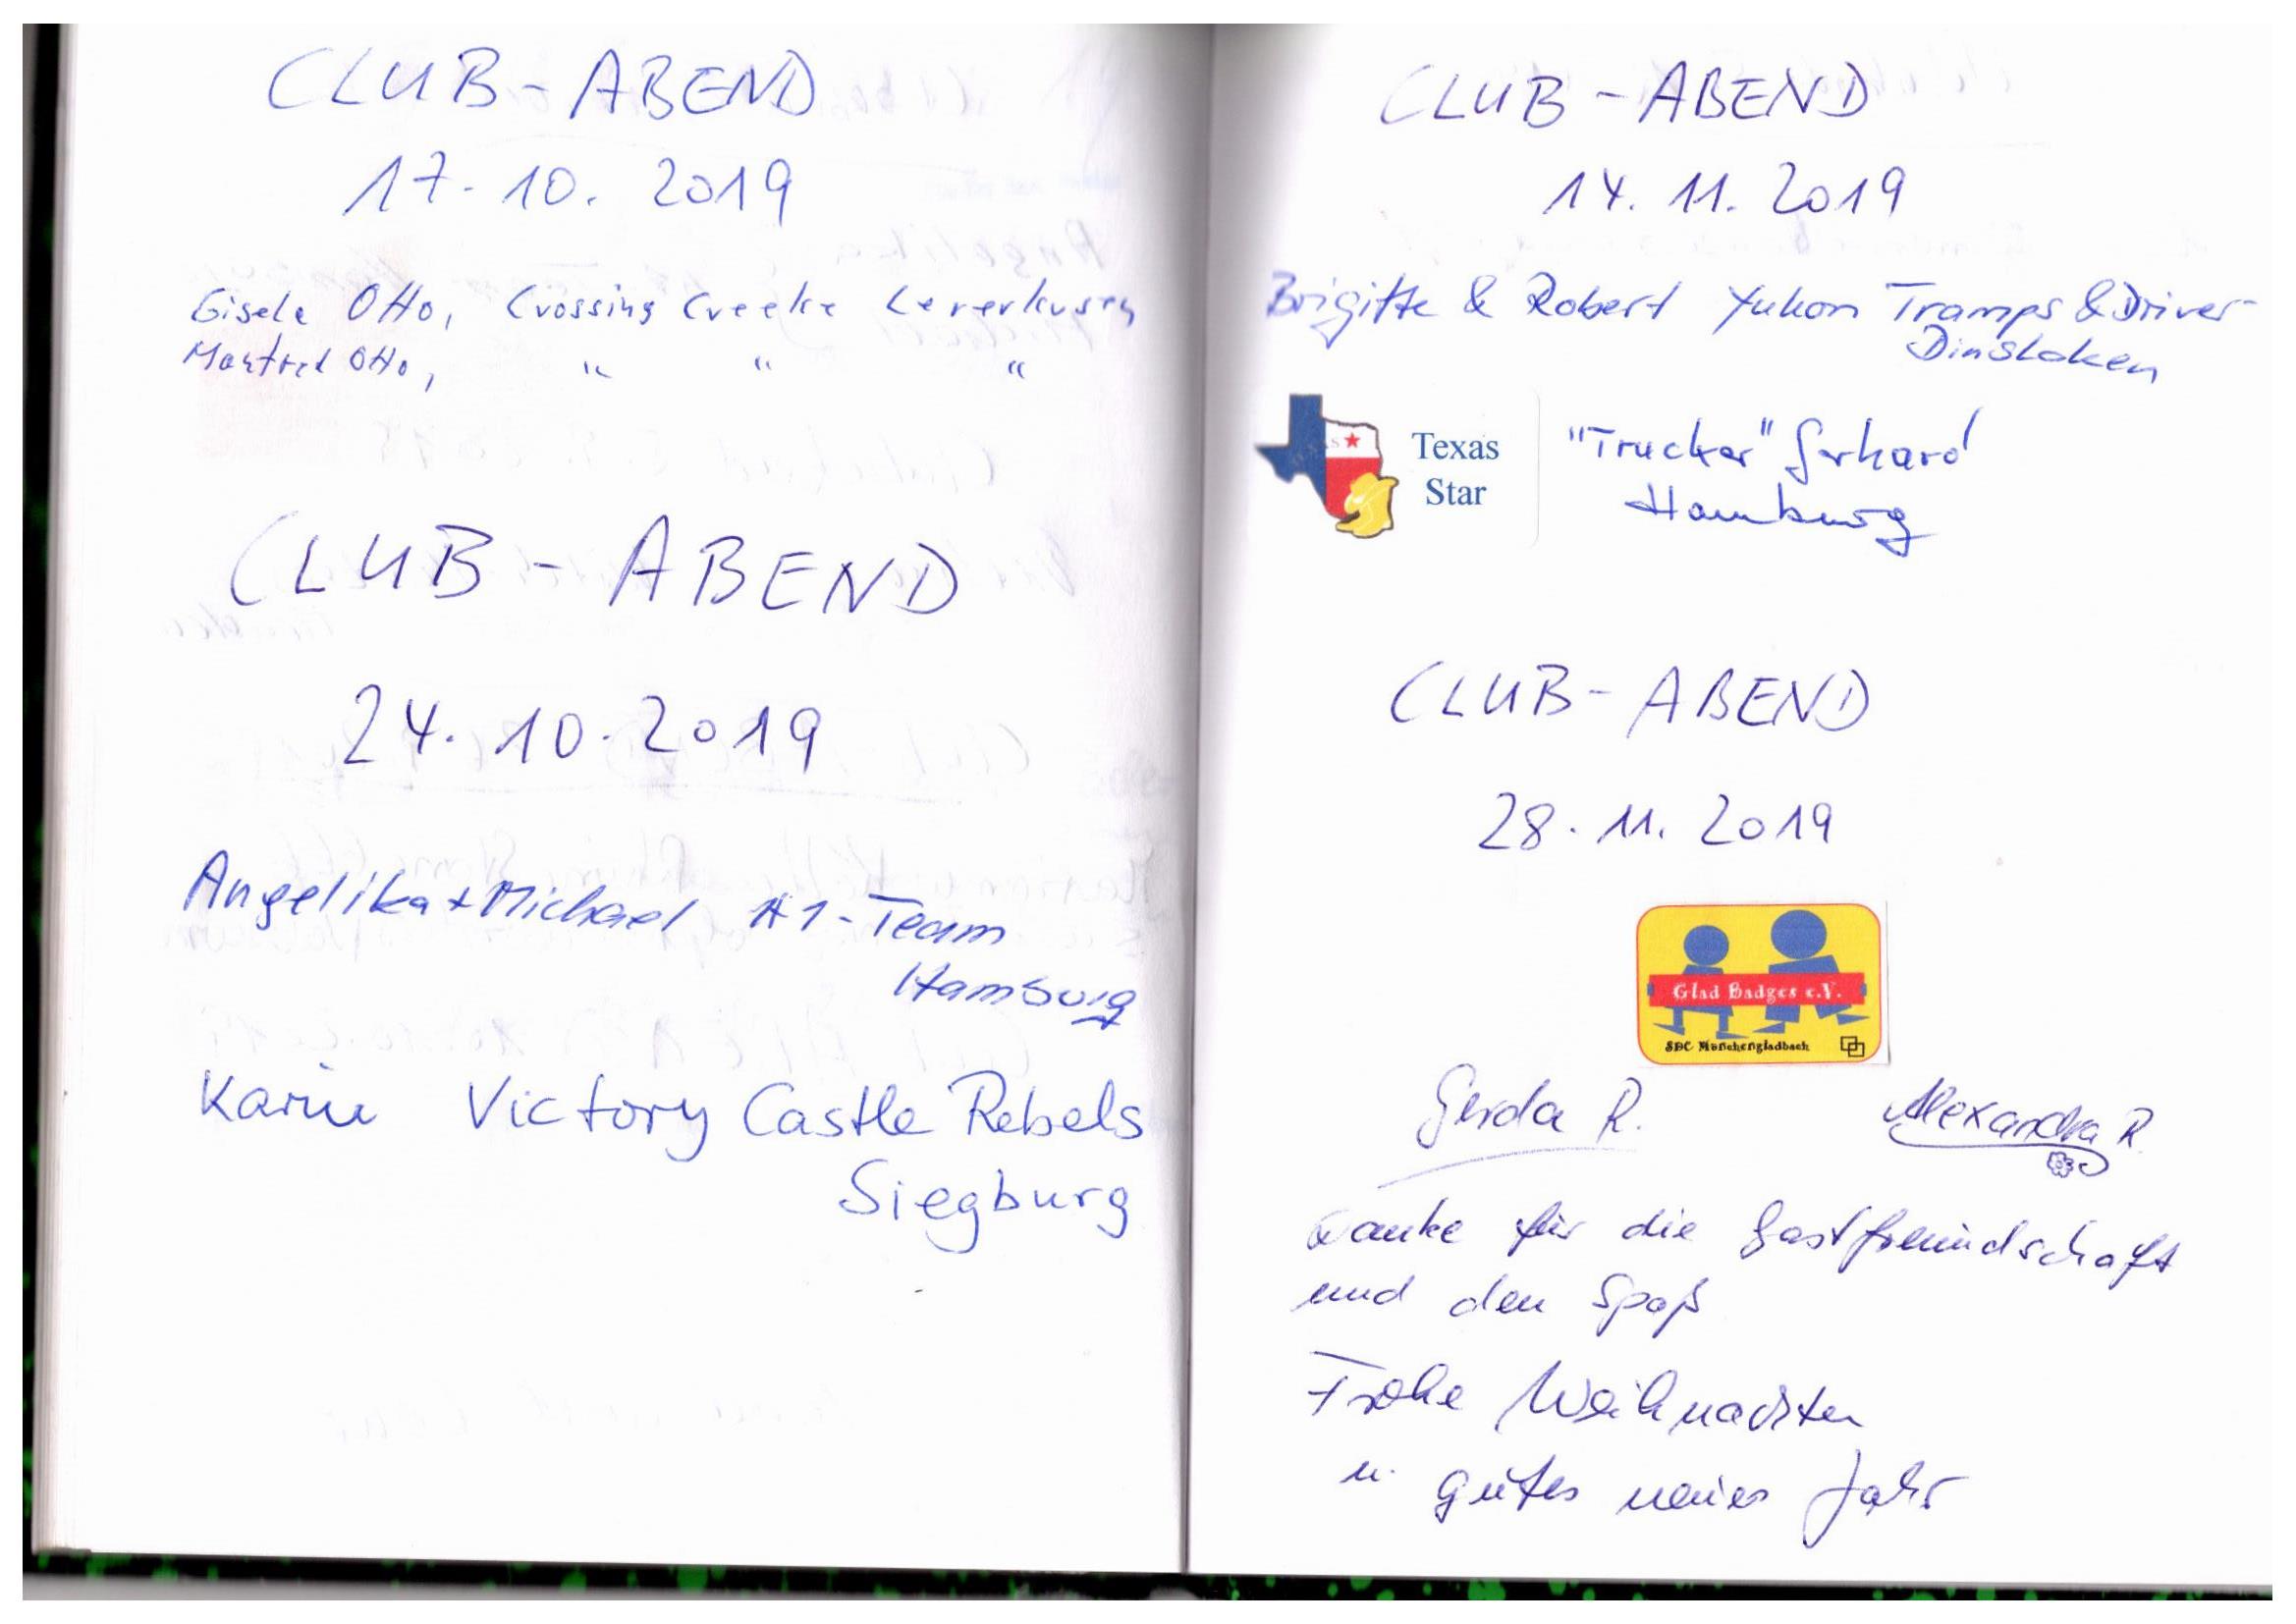 CLUB-ABEND
17. 10. 2019
Gisela Otto, Crossing Creeke Leverkusen
Manfred Otto, " " "
CLUB - ABEND
24. 10. 2019
Angelika + Michael #1-Team
Hamburg
Karin Victory Castle Rebels
Siegburg
CLUB - ABEND
14. 11. 2019
Brigitte & Robert Yukon Tramps & Driver-
Dinslaken
Texas
Star
"Trucker" Gerhard
Hamburg
CLUB - ABEND
28. 11. 2019
Glad Badges e.V.
SDC Mönchengladbach
Gerda R. Alexandra R.
Danke für die Gastfreundschaft
und den Spaß
Frohe Weihnachten
u. gutes neues Jahr